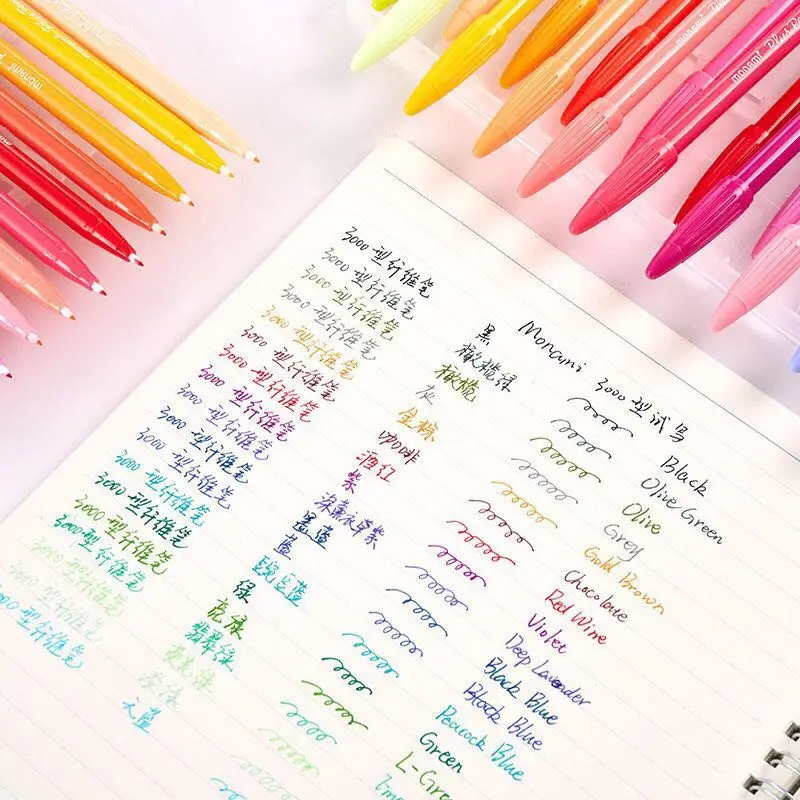 monami
monami
monami
monami Plus Pe
monami Plus
Monami 3000 型试写
3000 型纤维笔 黑 Black
3000 型纤维笔 橄榄绿 Olive Green
3000 型纤维笔 橄榄 Olive
3000 型纤维笔 灰 Grey
3000 型纤维笔 金棕 Gold Brown
3000 型纤维笔 咖啡 Chocolate
3000 型纤维笔 酒红 Red Wine
3000 型纤维笔 紫 Violet
3000 型纤维笔 深薰衣草紫 Deep Lavender
3000 型纤维笔 墨蓝 Black Blue
3000 型纤维笔 蓝 Block Blue
3000 型纤维笔 豌豆蓝 Peacock Blue
3000 型纤维笔 绿 Green
3000 型纤维笔 亮绿 L-Gre
3000 型纤维笔 翡翠绿
3000 型纤维笔 荧光绿
3000 型纤维笔
3000 型纤维笔 天蓝